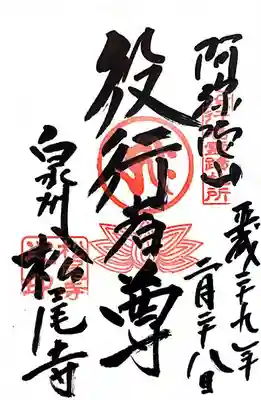 阿弥陀山
平成二十九年
二月二十八日
役行者尊
泉州 松尾寺